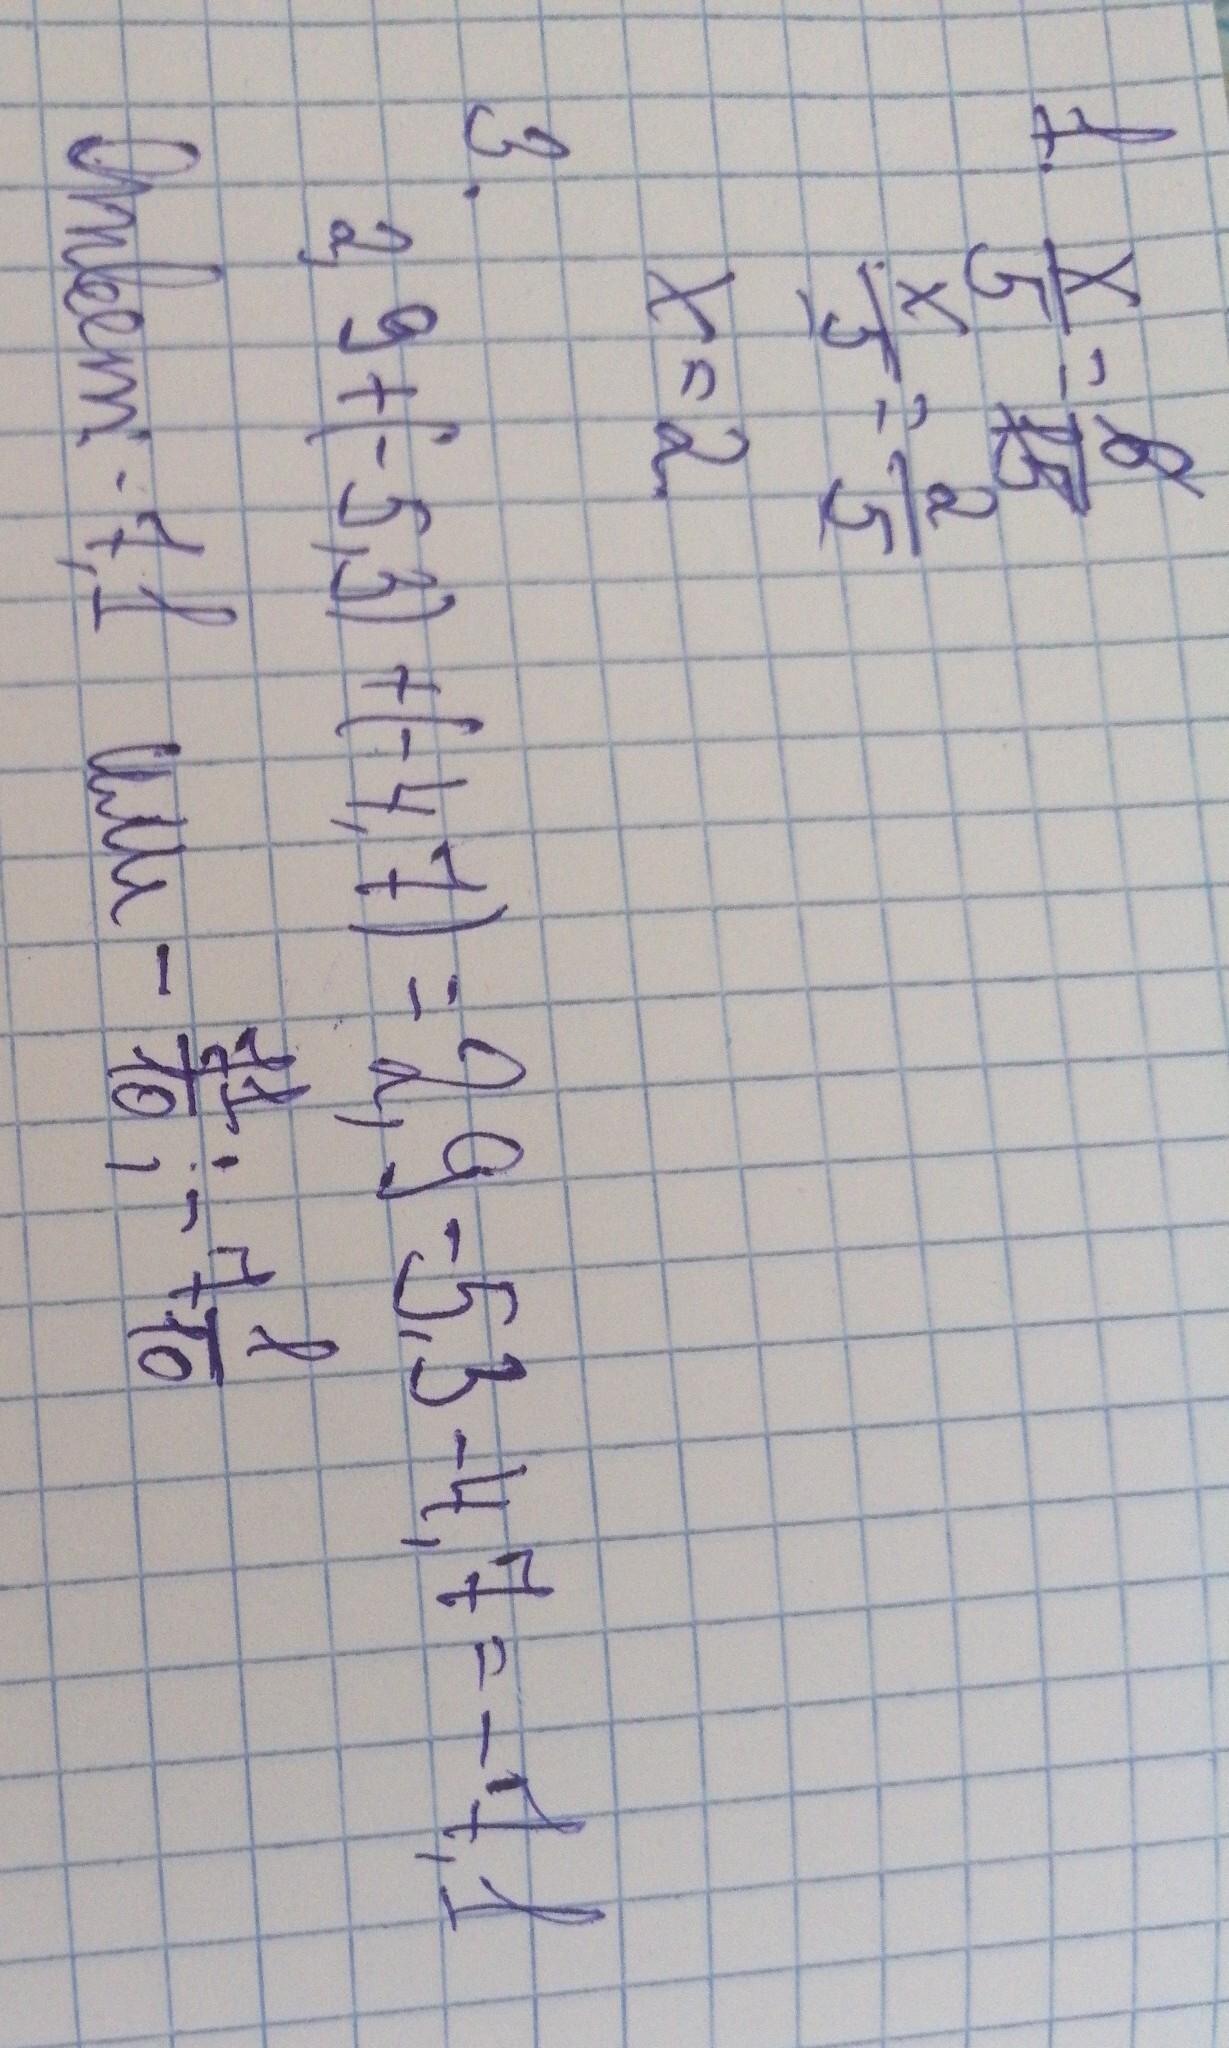 1. x/5 = 6/15
x/5 = 2/5
x = 2
3.
2,9+(-5,3)+(-4,7) = 2,9-5,3-4,7 = -7,1
Ответ: -7,1 или -71/10; -7 1/10